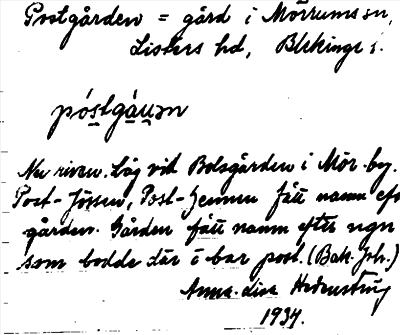 Postgården = gård i Mörrums sn,
Listers hd, Blekinge l.
póstgà̱u̱ən
Nu riven. Låg vid Bolsgården i Mör. by.
Post-Jössen, Post-Jennen fått namn efter
gården. Gården fått namn efter ngn
som bodde där o bar post. (Bah. Joh.)
Anna-Lisa Hedenstierna
1934.